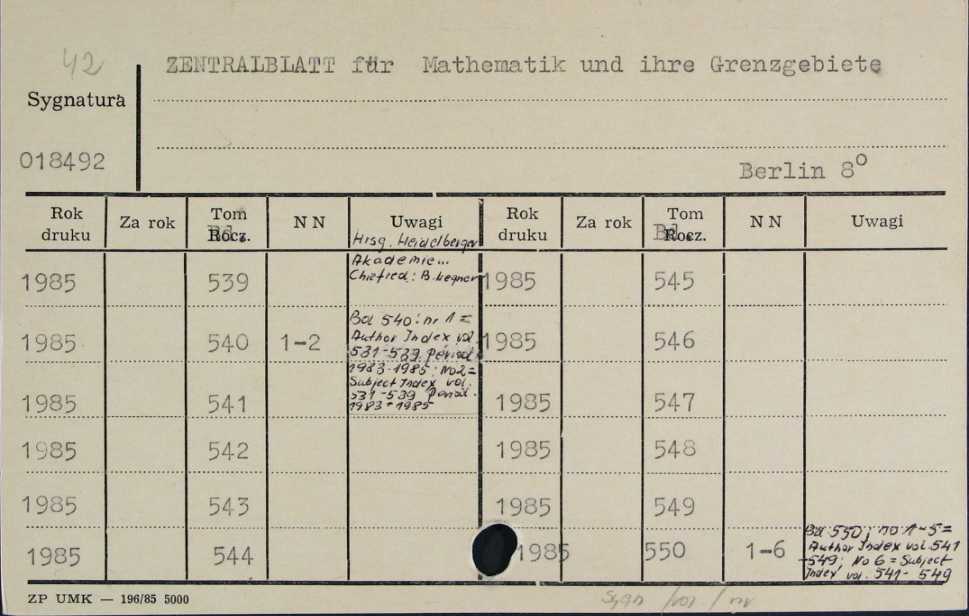 42
ZENTRALBLATT für Mathematik und ihre Grenzgebiete
Sygnatura
018492
Berlin 8°
Rok druku Za rok Tom Rocz. Bd. NN Uwagi Rok druku Za rok Tom Rocz. Bd. NN Uwagi
Hrsg. Heidelberger
Akademie...
Chiefred: B. Wegner
1985 539 1985 545
1985 540 1-2 1985 546
Bd 540: nr 1 =
Author Index vol.
531-539, Period
1983-1985; No2=
Subject Index vol.
531-539 Period.
1983-1985
1985 541 1985 547
1985 542 1985 548
1985 543 1985 549
1985 544 1985 550 1-6
Bd 550; no 1-5=
Author Index vol 541
-549; No 6 = Subject
Index vol. 541-549
ZP UMK — 196/85 5000
Sygn /vol / nr